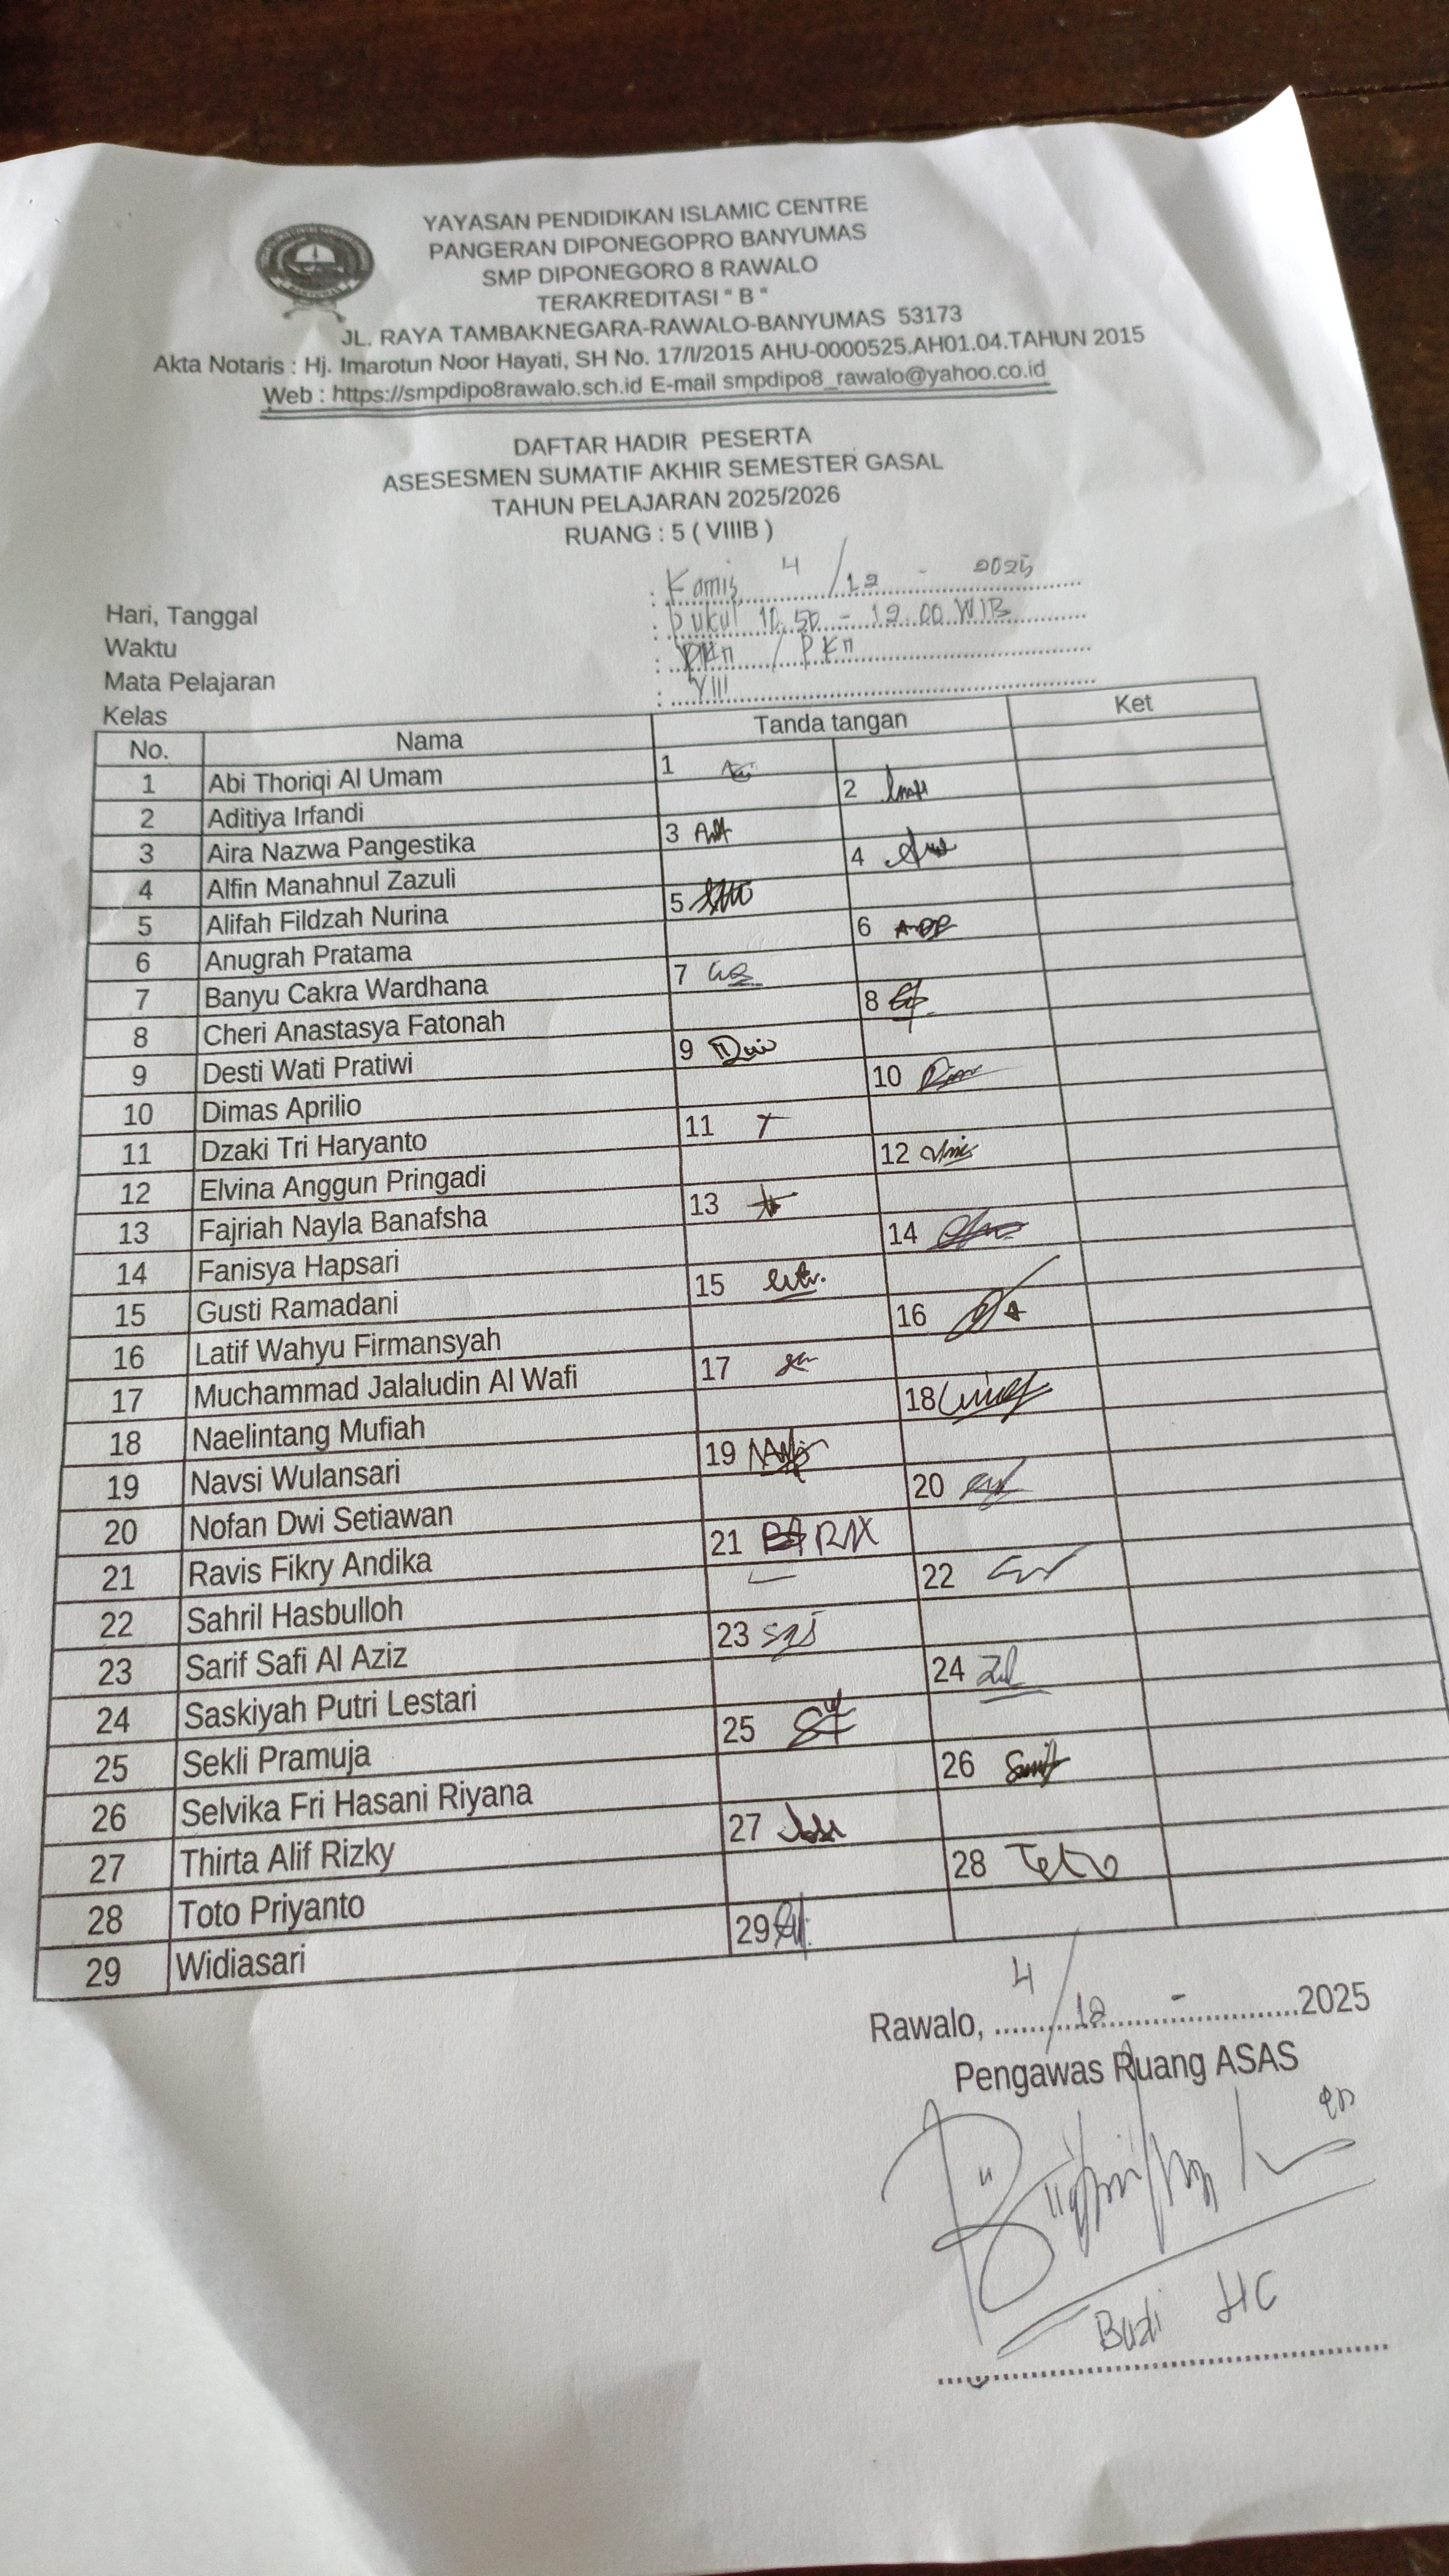 YAYASAN PENDIDIKAN ISLAMIC CENTRE
PANGERAN DIPONEGOPRO BANYUMAS
SMP DIPONEGORO 8 RAWALO
TERAKREDITASI " B "
JL. RAYA TAMBAKNEGARA-RAWALO-BANYUMAS 53173
Akta Notaris : Hj. Imarotun Noor Hayati, SH No. 17/I/2015 AHU-0000525.AH01.04.TAHUN 2015
Web : https://smpdipo8rawalo.sch.id E-mail smpdipo8_rawalo@yahoo.co.id
DAFTAR HADIR PESERTA
ASESESMEN SUMATIF AKHIR SEMESTER GASAL
TAHUN PELAJARAN 2025/2026
RUANG : 5 ( VIIIB )
Hari, Tanggal : Kamis, 4/12 - 2025
Waktu : pukul 10.50 - 12.00 WIB
Mata Pelajaran : PKn / PKn
Kelas : VIII
No. Nama Tanda tangan Ket
1 Abi Thoriqi Al Umam 1
2 Aditiya Irfandi 2
3 Aira Nazwa Pangestika 3
4 Alfin Manahnul Zazuli 4
5 Alifah Fildzah Nurina 5
6 Anugrah Pratama 6
7 Banyu Cakra Wardhana 7
8 Cheri Anastasya Fatonah 8
9 Desti Wati Pratiwi 9
10 Dimas Aprilio 10
11 Dzaki Tri Haryanto 11
12 Elvina Anggun Pringadi 12
13 Fajriah Nayla Banafsha 13
14 Fanisya Hapsari 14
15 Gusti Ramadani 15
16 Latif Wahyu Firmansyah 16
17 Muchammad Jalaludin Al Wafi 17
18 Naelintang Mufiah 18
19 Navsi Wulansari 19
20 Nofan Dwi Setiawan 20
21 Ravis Fikry Andika 21
22 Sahril Hasbulloh 22
23 Sarif Safi Al Aziz 23
24 Saskiyah Putri Lestari 24
25 Sekli Pramuja 25
26 Selvika Fri Hasani Riyana 26
27 Thirta Alif Rizky 27
28 Toto Priyanto 28
29 Widiasari 29
Rawalo, 4/12 - 2025
Pengawas Ruang ASAS
Budi HC